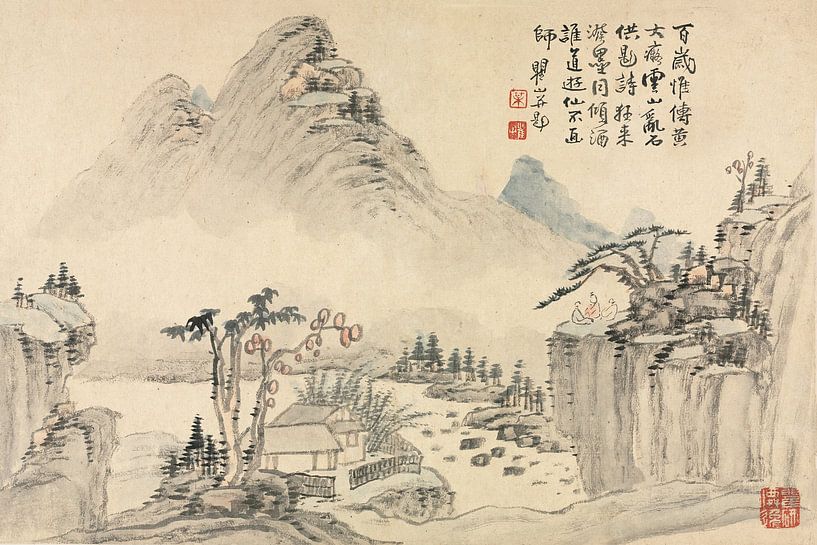 百歲惟傳黃
大癡雲山亂石
供題詩狂來
潑墨同傾酒
誰道遊仙不
師 瞿山并題